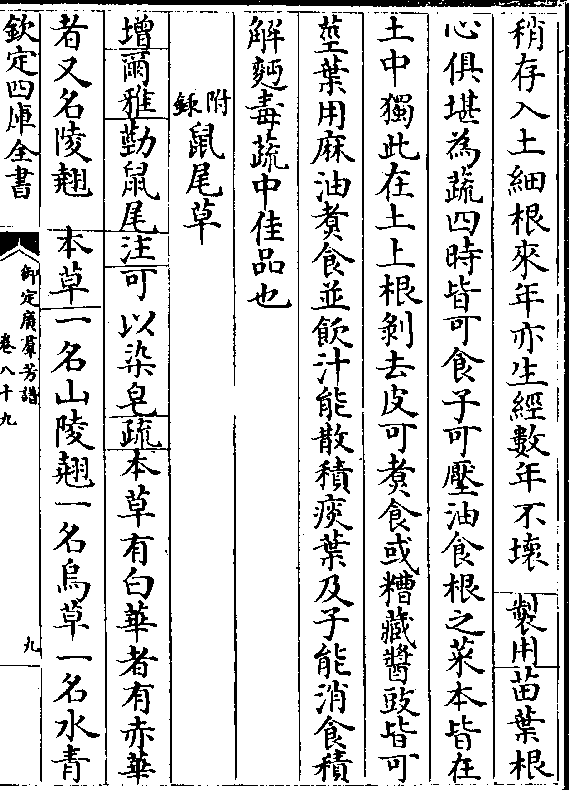 稍存入土細根來年亦生經數年不壞　製用苗葉根
心俱堪為蔬四時皆可食子可壓油食根之菜本皆在
土中獨此在土上根剝去皮可煑食或糟藏醬豉皆可
莖葉用麻油煑食並飲汁能散積痰葉及子能消食積
解麫毒蔬中佳品也
附錄鼠尾草
增爾雅勤鼠尾注可以染皂疏本草有白華者有赤華
者又名陵翹　本草一名山陵翹一名烏草一名水青
欽定四庫全書
御定廣羣芳譜
卷八十九
九